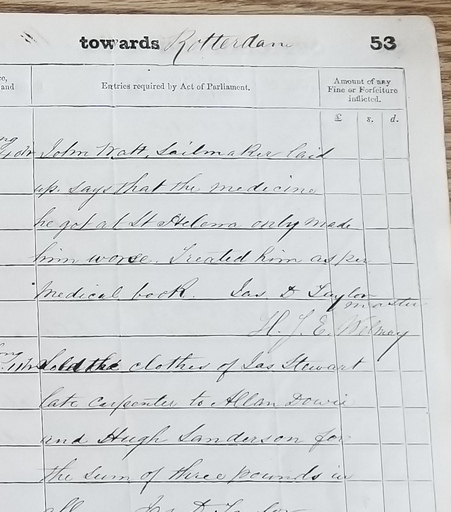 towards Rotterdam 53
and
Entries required by Act of Parliament.
Amount of any
Fine or Forfeiture
inflicted.
£ s. d.
John Watt, Sailmaker laid
up. says that the medicine
he got at St Helena only made
him worse. Treated him as per
Medical book. Jas D Taylor
master
H. J. E.
Sold the clothes of Jas Stewart
late carpenter to Allan Dowie
and Hugh Sanderson for
the sum of three pounds in
all Jas D Taylor